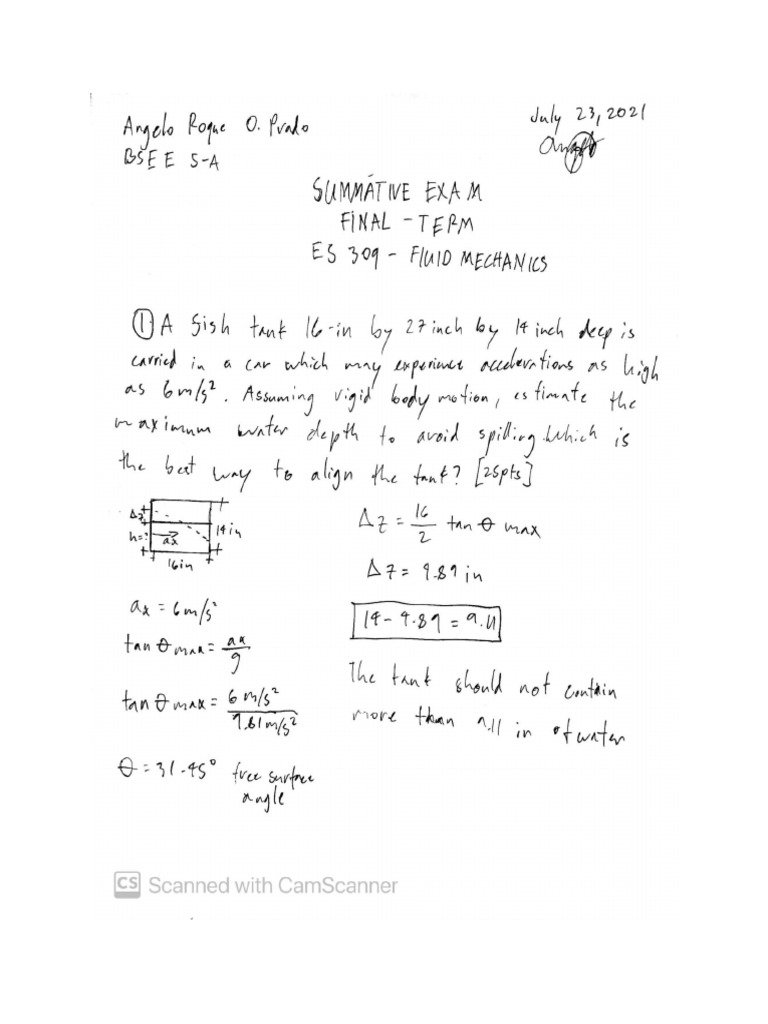 Angelo Roque O. Prado
July 23, 2021
BSEE 5-A
SUMMATIVE EXAM
FINAL - TERM
ES 309 - FLUID MECHANICS
① A fish tank 16-in by 27 inch by 14 inch deep is
carried in a car which may experience accelerations as high
as 6 m/s². Assuming rigid body motion, estimate the
maximum water depth to avoid spilling. Which is
the best way to align the tank? [25pts]
Δz
h=?
ax
14 in
16in
ax = 6 m/s²
tan θ max = ax/g
tan θ max = 6 m/s² / 9.81 m/s²
θ = 31.45° free surface
angle
Δz = 16/2 tan θ max
Δz = 4.89 in
14 - 4.89 = 9.11
The tank should not contain
more than 9.11 in of water
CS Scanned with CamScanner